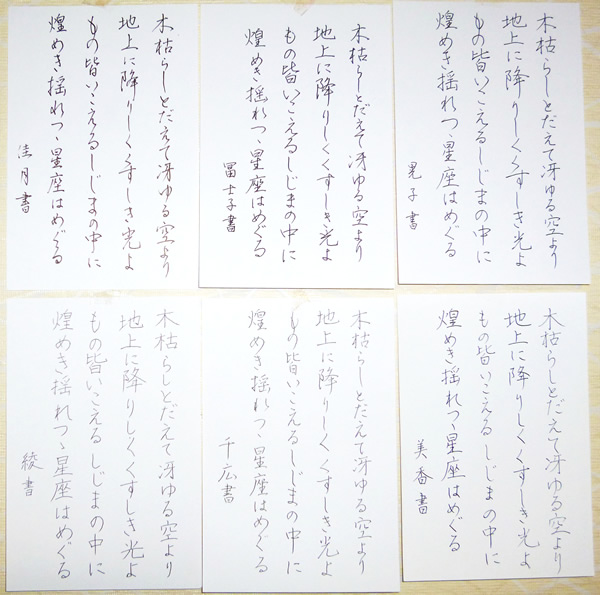 木枯らしとだえて冴ゆる空より
地上に降りしくくすしき光よ
もの皆いこえるしじまの中に
煌めき揺れつゝ星座はめぐる
晃子書
木枯らしとだえて冴ゆる空より
地上に降りしくくすしき光よ
もの皆いこえるしじまの中に
煌めき揺れつゝ星座はめぐる
冨士子書
木枯らしとだえて冴ゆる空より
地上に降りしくくすしき光よ
もの皆いこえるしじまの中に
煌めき揺れつゝ星座はめぐる
月書
木枯らしとだえて冴ゆる空より
地上に降りしくくすしき光よ
もの皆いこえるしじまの中に
煌めき揺れつゝ星座はめぐる
美香書
木枯らしとだえて冴ゆる空より
地上に降りしくくすしき光よ
もの皆いこえるしじまの中に
煌めき揺れつゝ星座はめぐる
千広書
木枯らしとだえて冴ゆる空より
地上に降りしくくすしき光よ
もの皆いこえるしじまの中に
煌めき揺れつゝ星座はめぐる
綾書